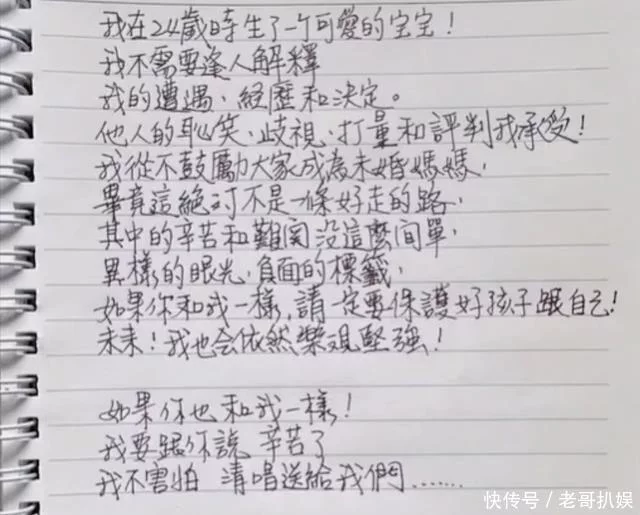 我在24歲時生了一个可愛的宝宝!
我不需要逢人解釋
我的遭遇、經歷和決定。
他人的恥笑、歧視、打量和評判我承受!
我從不鼓勵大家成為未婚媽媽,
畢竟這絕对不是一條好走的路,
其中的辛苦和難関没這麼簡單,
異樣的眼光、負面的標籤,
如果你和我一樣,請一定要保護好孩子跟自己!
未来!我也会依然樂观堅強!
如果你也和我一樣!
我要跟你說 辛苦了
我不害怕 清唱送給我們.......
快传号/老哥扒娱